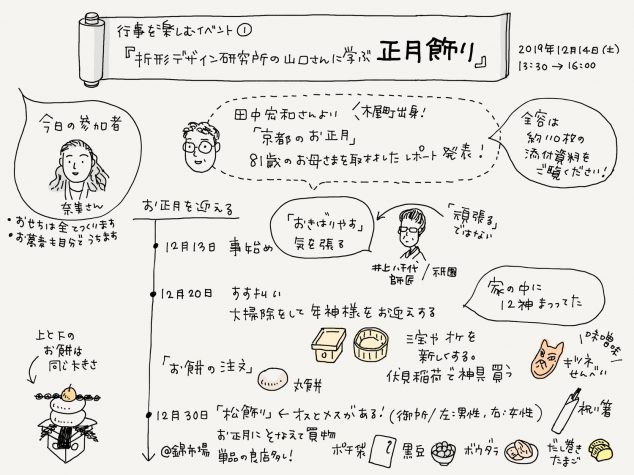 行事を楽しむイベント①
『折形デザイン研究所の山口さんに学ぶ 正月飾り』
2019年12月14日(土)
13:30→16:00
今日の参加者
奈美さん
・おせちは全てつくります
・お蕎麦も自分でうちます
田中宏和さんより
木屋町出身!
「京都のお正月」
81歳のお母さまを取材したレポート発表!
全容は
約110枚の
添付資料を
ご覧ください!
お正月を迎える
12月13日 事始め
「おきばりやす」
気を張る
「頑張る」
ではない
井上八千代
師匠
祇園
12月20日 すす払い
大掃除をして年神様をお迎えする
家の中に
12神まつってた
「お餅の注文」
丸餅
三宝やオケを
新しくする。
伏見稲荷で神具買う
味噌味!
キツネ
せんべい
上と下の
お餅は
同じ大きさ
12月30日「松飾り」←オスとメスがある!(御所/左:男性,右:女性)
祝い箸
お正月にそなえて買物
@錦市場
単品の良店多し!
ポチ袋
黒豆
ボウダラ
だし巻き
たまご